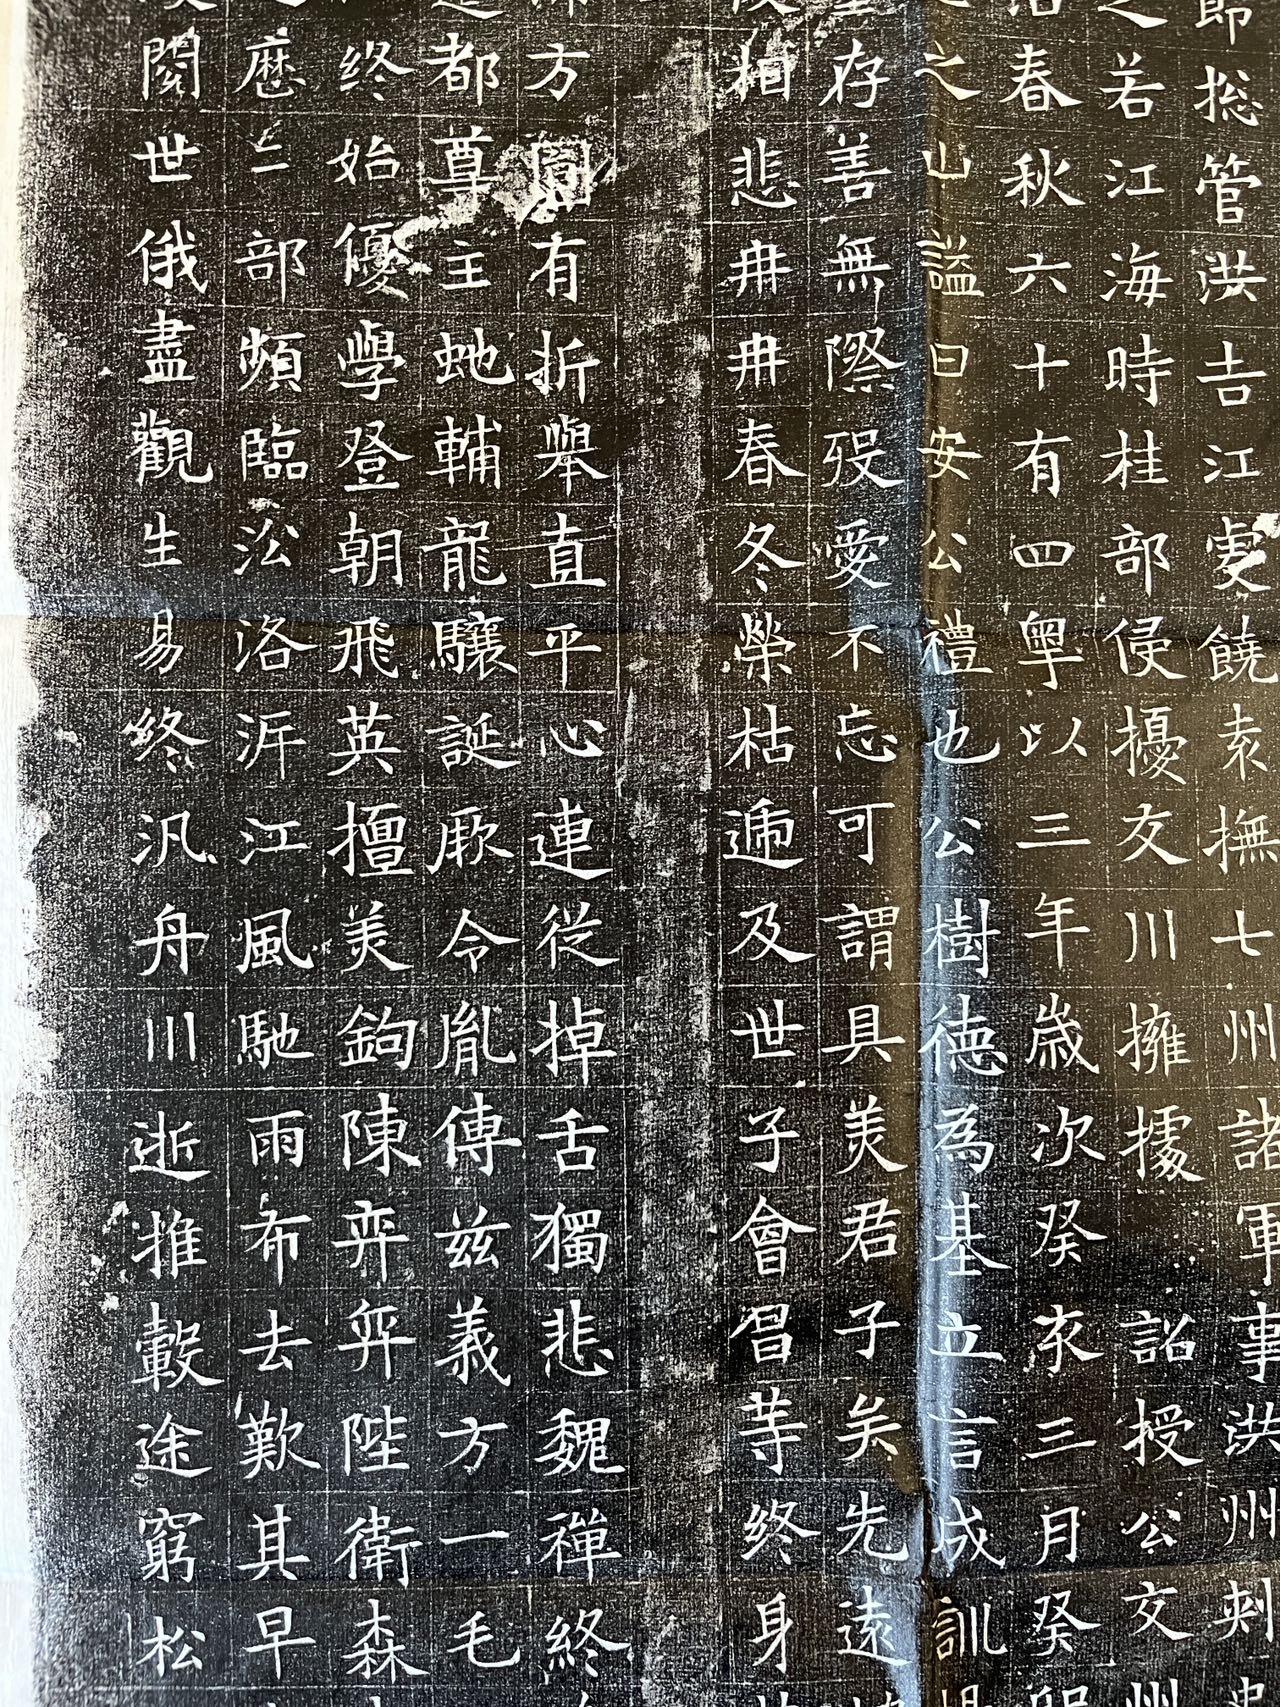 節摠管洪吉江虔饒袁撫七州諸軍事洪州刺史
之若江海時桂部侵擾交川擁據詔授公交州
春秋六十有四粤以三年歲次癸亥三月癸卯
之山謚曰安公禮也公樹德為基立言成訓
存善無際歿愛不忘可謂具美君子矣先遠
相悲冉冉春冬榮枯遞及世子會昌等終身
方圓有折舉直平心連從掉舌獨悲魏禪終
都尊主虵輔龍驤誕厥令胤傳兹義方一毛
終始優學登朝飛英擅美鉤陳弈弈陛衛森
歷三部頻臨沿洛泝江風馳雨布去歎其早
閱世俄盡觀生易終汎舟川逝推轂途窮松